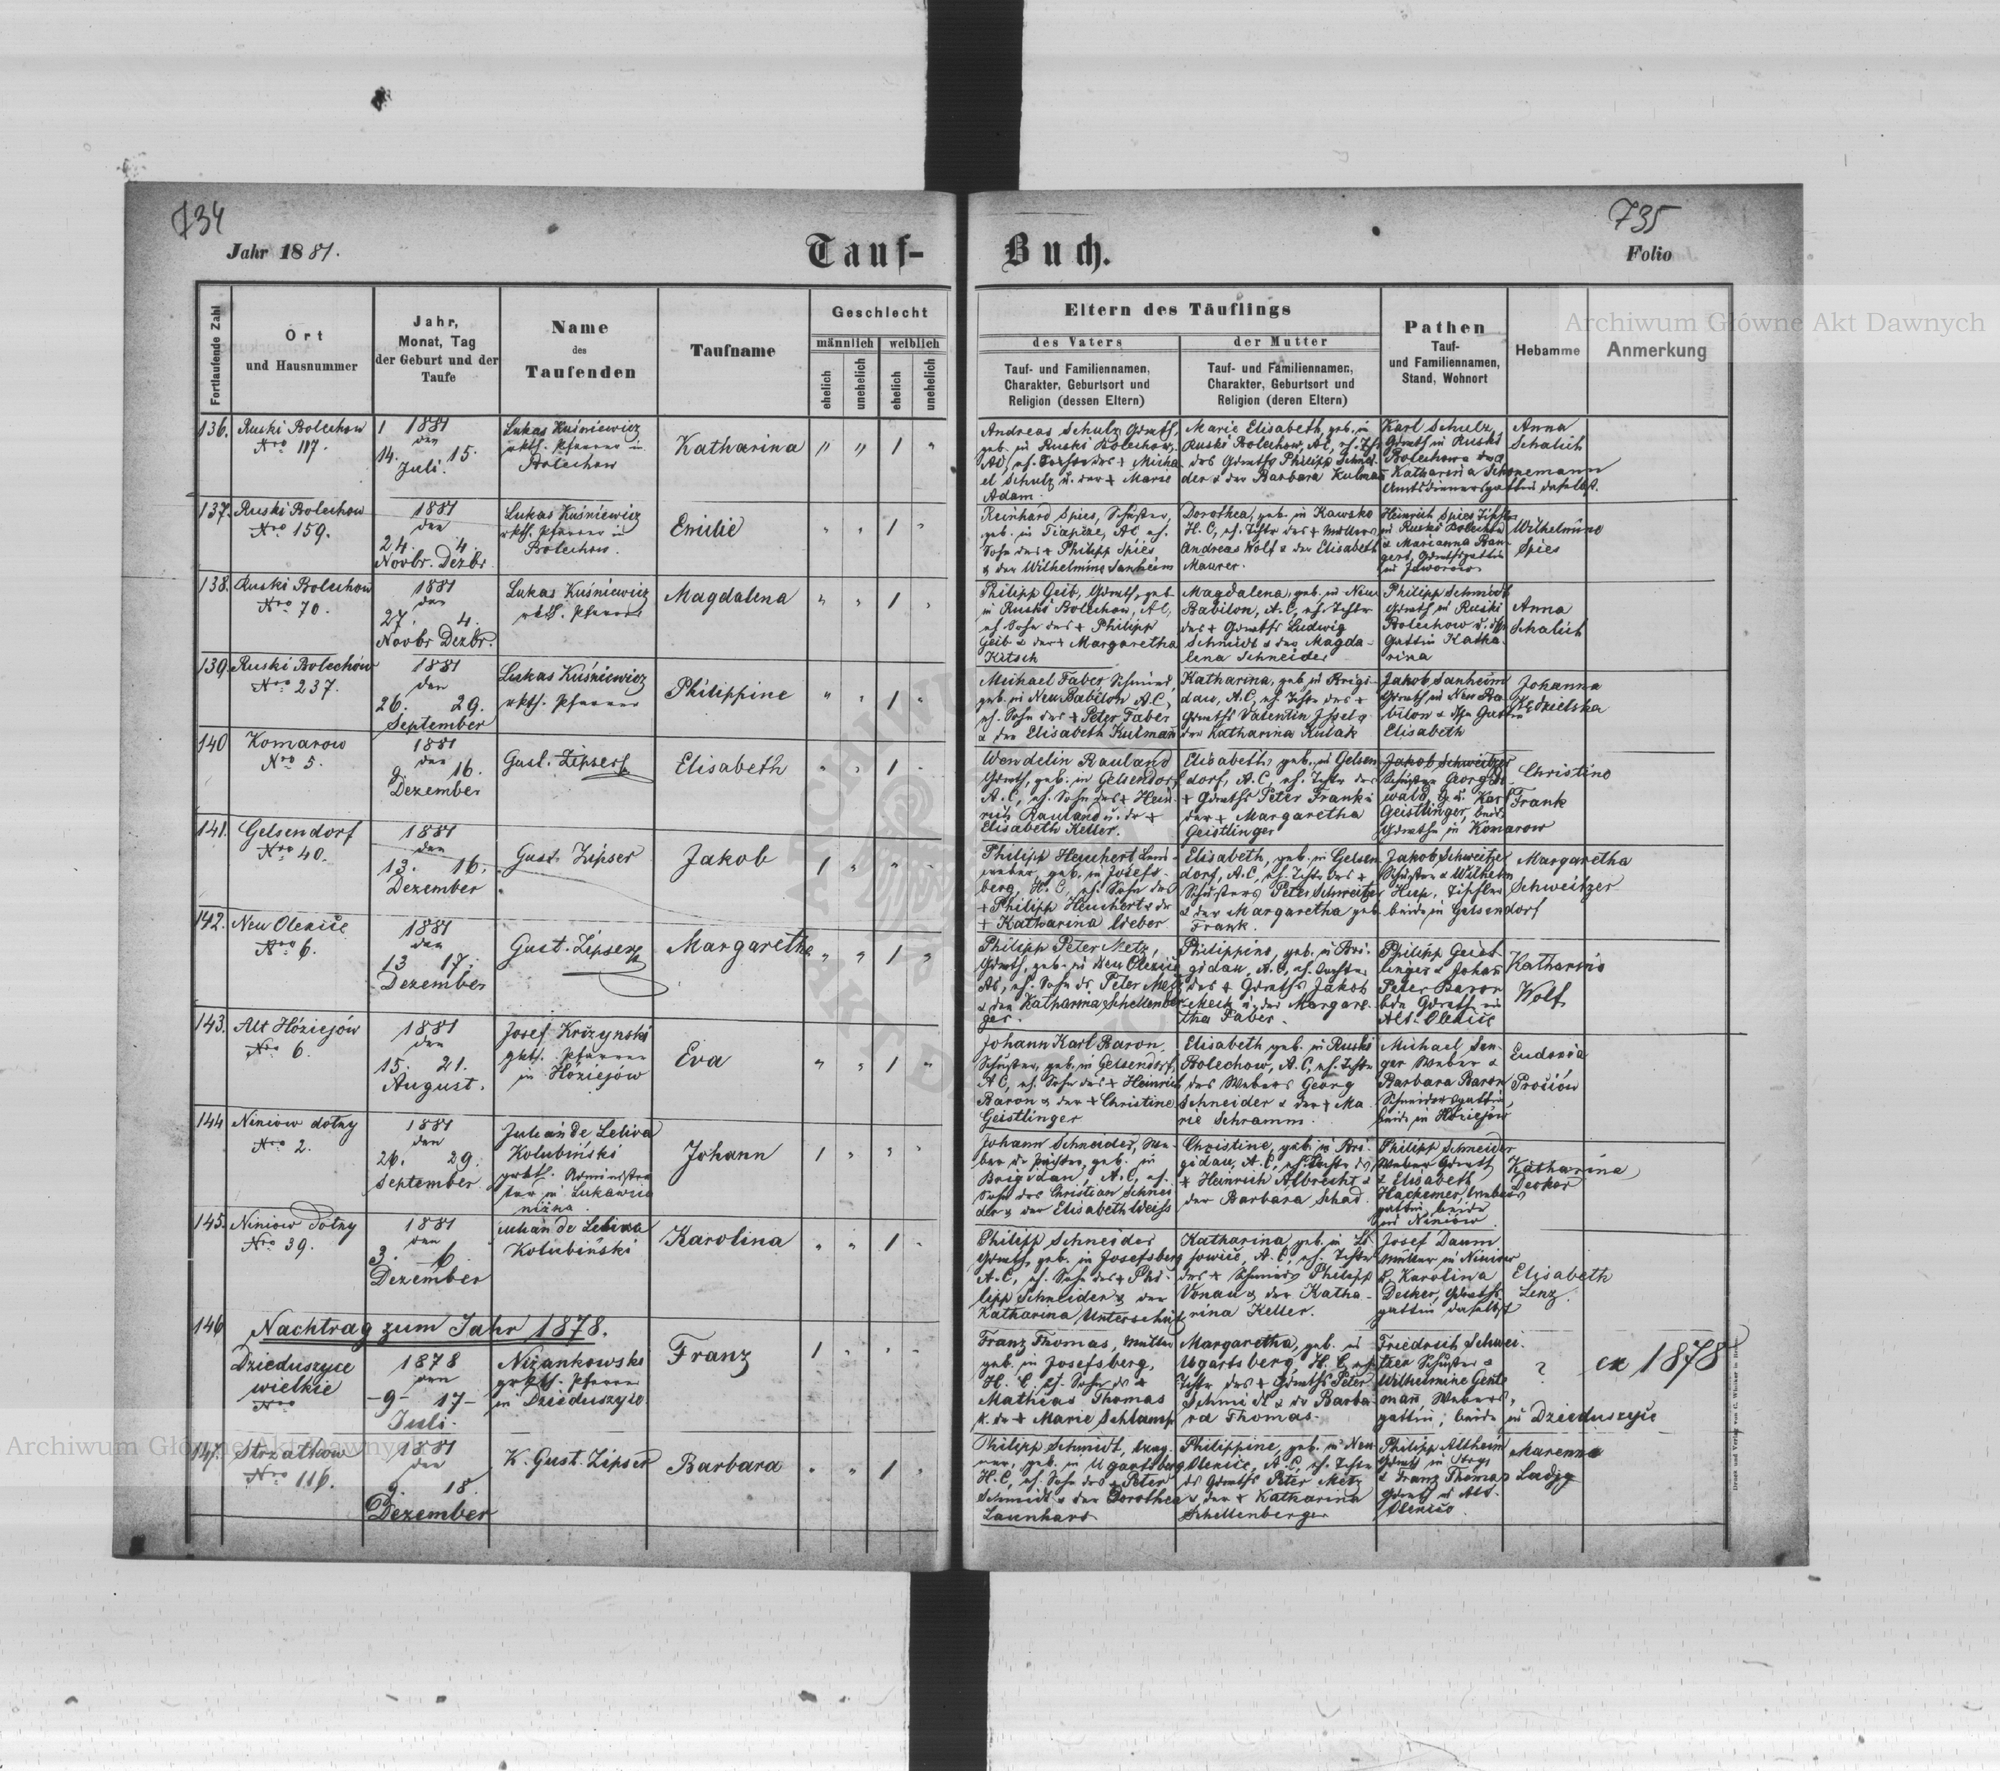 734
735
Jahr 1881.
Tauf-
Buch.
Folio
Fortlaufende Zahl
Ort
und Hausnummer
Jahr,
Monat, Tag
der Geburt und der
Taufe
Name
des
Taufenden
Taufname
Geschlecht
männlich
weiblich
ehelich
unehelich
ehelich
unehelich
Eltern des Täuflings
des Vaters
der Mutter
Tauf- und Familiennamen,
Charakter, Geburtsort und
Religion (dessen Eltern)
Tauf- und Familiennamen,
Charakter, Geburtsort und
Religion (deren Eltern)
Pathen
Tauf-
und Familiennamen,
Stand, Wohnort
Hebamme
Anmerkung
136.
Ruski Bolechow
Nro 117.
1881
den
14. 15.
Juli.
Lukas Kuśniewicz
rkth. Pfarrer in
Bolechow
Katharina
" " 1 "
Andreas Schulz
geb. in Ruski Bolechow,
AC, eh. Sohn des + Micha
el Schulz u. der + Marie
Adam.
Marie Elisabeth, geb. in
Ruski Bolechow, AC, eh. Tcht
des Philipp Schnei-
der & der Barbara Kulman
Karl Schulz,
in Ruski
Bolechow und
Katharina Schönemann
Amtsdienersgattin daselbst.
Anna
Schalich
137.
Ruski Bolechow
Nro 159.
1881
den
24. 4.
Novbr. Dezbr.
Lukas Kuśniewicz
rkth. Pfarrer in
Bolechow.
Emilie
" " 1 "
Reinhard Spies, Schuster,
geb. in AC, eh.
Sohn des + Philipp Spies
& der Wilhelmine Sanheim
Dorothea, geb. in Kawsko
H.C., eh. Tchtr des + Müllers
Andreas Wolf & der Elisabeth
Maurer.
Heinrich Spies
in Ruski Bolechow
& Marianna Ban-
gert,
in Jaworow
Wilhelmine
Spies
138.
Ruski Bolechow
Nro 70.
1881
den
27. 4.
Novbr Dezbr.
Lukas Kuśniewicz
rkth. Pfarrer
Magdalena
" " 1 "
Philipp Geib, geb.
in Ruski Bolechow, AC,
eh. Sohn des + Philipp
Geib & der + Margaretha
Kitsch
Magdalena, geb. in Neu
Babilon, A.C., eh. Tchtr
des + Ludwig
Schmidt & der Magda-
lena Schneider
Philipp Schmidt
in Ruski
Bolechow u. dessen
Gattin Katha-
rina
Anna
Schalich
139.
Ruski Bolechów
Nro 237.
1881
den
26. 29.
September
Lukas Kuśniewicz
rkth. Pfarrer
Philippine
" " 1 "
Michael Faber Schmied,
geb. in Neu Babilon A.C.,
eh. Sohn des + Peter Faber
& der Elisabeth Kulman
Katharina, geb. in Brigi-
dau, A.C, eh. Tchtr des +
Valentin
der Katharina Kulak
Jakob Sanheim
in Neu Ba-
bilon & dessen Gattin
Elisabeth
Johanna
Kędzielska
140
Komarow
Nro 5.
1881
den
9. 16.
Dezember
Gust. Zipser
Elisabeth
" " 1 "
Wendelin Rauland
geb. in Gelsendorf
A.C, eh. Sohn des + Hein
rich Rauland u. der +
Elisabeth Keller.
Elisabeth, geb. in Gelsen
dorf, A.C, eh. Tchtr des
+ Peter Frank &
der + Margaretha
Geistlinger
Jakob Schweitzer
Schuster Georg
wald u. Karl
Geistlinger, beide
in Komarow
Christine
Frank
141.
Gelsendorf
Nro 40.
1881
den
13. 16.
Dezember
Gust. Zipser
Jakob
1 " " "
Philipp Heuchert Lein-
weber, geb. in Josefs-
berg, H.C, eh. Sohn des
+ Philipp Heuchert & der
+ Katharina Weber
Elisabeth, geb. in Gelsen
dorf, A.C, eh. Tchtr des +
Schusters Peter Schweitzer
& der Margaretha geb.
Frank.
Jakob Schweitzer
Schuster & Wilhelm
beide in Gelsendorf
Margaretha
Schweitzer
142.
Neu Olexice
Nro 6.
1881
den
13 17.
Dezember
Gust. Zipser
Margaretha
" " 1 "
Philipp Peter Metz,
geb. in Neu Olexice
AC, eh. Sohn des Peter Metz
& der Katharina Schellenber
ger.
Philippine, geb. in Bri-
gidau, A.C, eh. Tochter
des + Jakob
Meck u. der Margare-
tha Faber.
Philipp Geist
linger & Johann
Peter Baron
in
Alt-Olexice
Katharina
Wolf
143.
Alt Hóziejów
Nro 6.
1881
den
15. 21.
August.
Josef Kriżynski
gkth. Pfarrer
in Hóziejów
Eva
" " 1 "
Johann Karl Baron
Schuster, geb. in Gelsendorf,
AC, eh. Sohn des + Heinrich
Baron & der + Christine
Geistlinger
Elisabeth geb. in Ruski
Bolechow, A.C, eh. Tchtr
des Webers Georg
Schneider & der + Ma
rie Schramm.
Michael Sen-
ger Weber &
Barbara Baron
beide in Hóziejów
Eudoxia
Prociów
144
Niniow dolny
Nro 2.
1881
den
26. 29.
September
Julian de Leliva
Kolubiński
grkth. Administra
tor in Lukawica
niżna.
Johann
1 " " "
Johann Schneider, We-
ber geb. in
Brigidau, A.C, eh.
Sohn des Christian Schnei
der & der Elisabeth Weiss
Christine, geb. in Bri-
gidau, A.C, eh. Tochtr des
+ Heinrich Albrecht &
der Barbara Schad.
Philipp Schneider
Weber
& Elisabeth
Hachemer, Webers
gattin, beide
in Niniow
Katharina
Decker
145.
Niniow Dolny
Nro 39.
1881
den
3. 6.
Dezember
Julian de Leliwa
Kolubiński
Karolina
" " 1 "
Philipp Schneider
geb. in Josefsberg
A.C, eh. Sohn des + Phi-
lipp Schneider & der
Katharina Unterschütz
Katharina geb. in
A.C, eh. Tchtr
des + Schmieds Philipp
Vonau & der Katha-
rina Keller.
Josef Daum
Müller in Niniow
& Karolina
Decker,
gattin daselbst
Elisabeth
Lenz.
146
Nachtrag zum Jahr 1878.
Dzieduszyce
wielkie
Nro
1878
den
-9- 17-
Juli.
Niżankowski
grkth. Pfarrer
in Dzieduszyce
Franz
1 " " "
Franz Thomas, Müller
geb. in Josefsberg,
H.C, eh. Sohn des +
Mathias Thomas
u. der + Marie Schlamp
Margaretha, geb. in
Ugartsberg, H.C, eh
Tchtr des + Peter
Schmidt & der Barba-
ra Thomas.
Friedrich Schwei-
tzer Schuster &
Wilhelmine
mann, Webers
gattin; beide in Dzieduszyce
?
ex 1878
147.
Strzalkow
Nro 116.
1881
den
9. 18.
Dezember
K. Gust. Zipser
Barbara
" " 1 "
Philipp Schmidt,
geb. in Ugartsberg
H.C, eh. Sohn des + Peter
Schmidt & der Dorothea
Launhars
Philippine, geb. in Neu
Olexice, A.C, eh. Tchtr
des Peter Metz
& der + Katharina
Schellenberger
Philipp Altheim
in Stryj
& Franz Thomas
in Alt-
Olexice.
Marenna
Ladyg
Archiwum Główne Akt Dawnych
Archiwum Główne Akt Dawnych